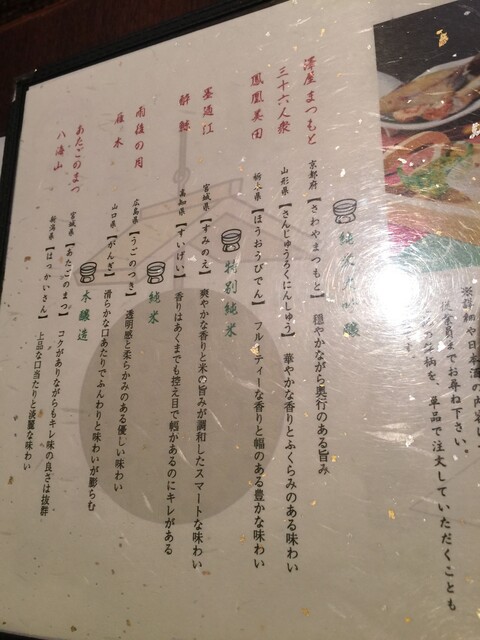 ※詳細や日本酒の内容
までお尋ね下さい。
銘柄を、単品で注文していただくことも
ます。
純米大吟醸
澤屋 まつもと 京都府【さわやまつもと】 穏やかながら奥行のある旨み
三十六人衆 山形県【さんじゅうろくにんしゅう】 華やかな香りとふくらみのある味わい
鳳凰美田 栃木県【ほうおうびでん】 フルーティーな香りと幅のある豊かな味わい
特別純米
墨廼江 宮城県【すみのえ】 爽やかな香りと米の旨みが調和したスマートな味わい
酔鯨 高知県【すいげい】 香りはあくまでも控え目で幅があるのにキレがある
純米
雨後の月 広島県【うごのつき】 透明感と柔らかみのある優しい味わい
雁木 山口県【がんぎ】 滑らかな口あたりでふんわりと味わいが膨らむ
本醸造
あたごのまつ 宮城県【あたごのまつ】 コクがありながらもキレ味の良さは抜群
八海山 新潟県【はっかいさん】 上品な口当たりと淡麗な味わい